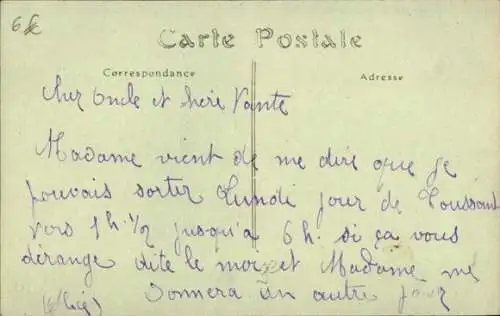 6€
Carte Postale
Correspondance Adresse
Cher Oncle et chère Tante
Madame vient de me dire que je
pouvais sortir Lundi jour de Toussaint
vers 1 h. 1/2 jusqu'a 6 h. si ça vous
dérange dite le moi et Madame me
donnera un autre jour